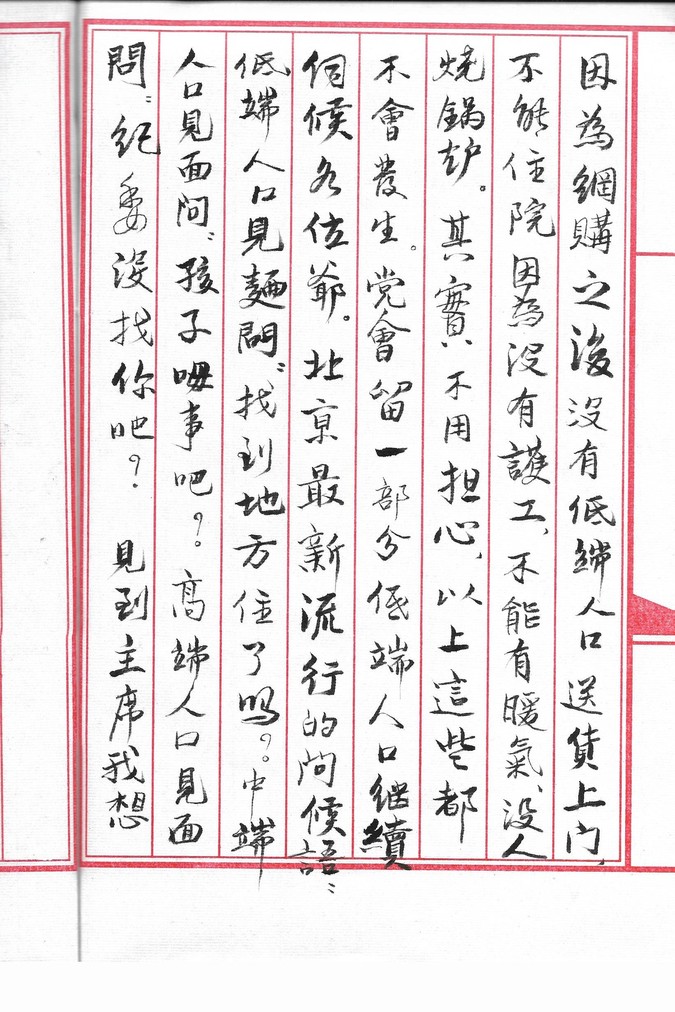 因為網購之後没有低端人口送货上门、
不能住院因為没有護工、不能有暖氣、没人
烧锅炉。其實不用担心、以上這些都
不會發生。党會留一部分低端人口继續
伺候各位爺。北京最新流行的问候語：
低端人口見麵問：找到地方住了吗？。中端
人口見面问：孩子呣事吧？。高端人口見面
問：纪委没找你吧？見到主席我想